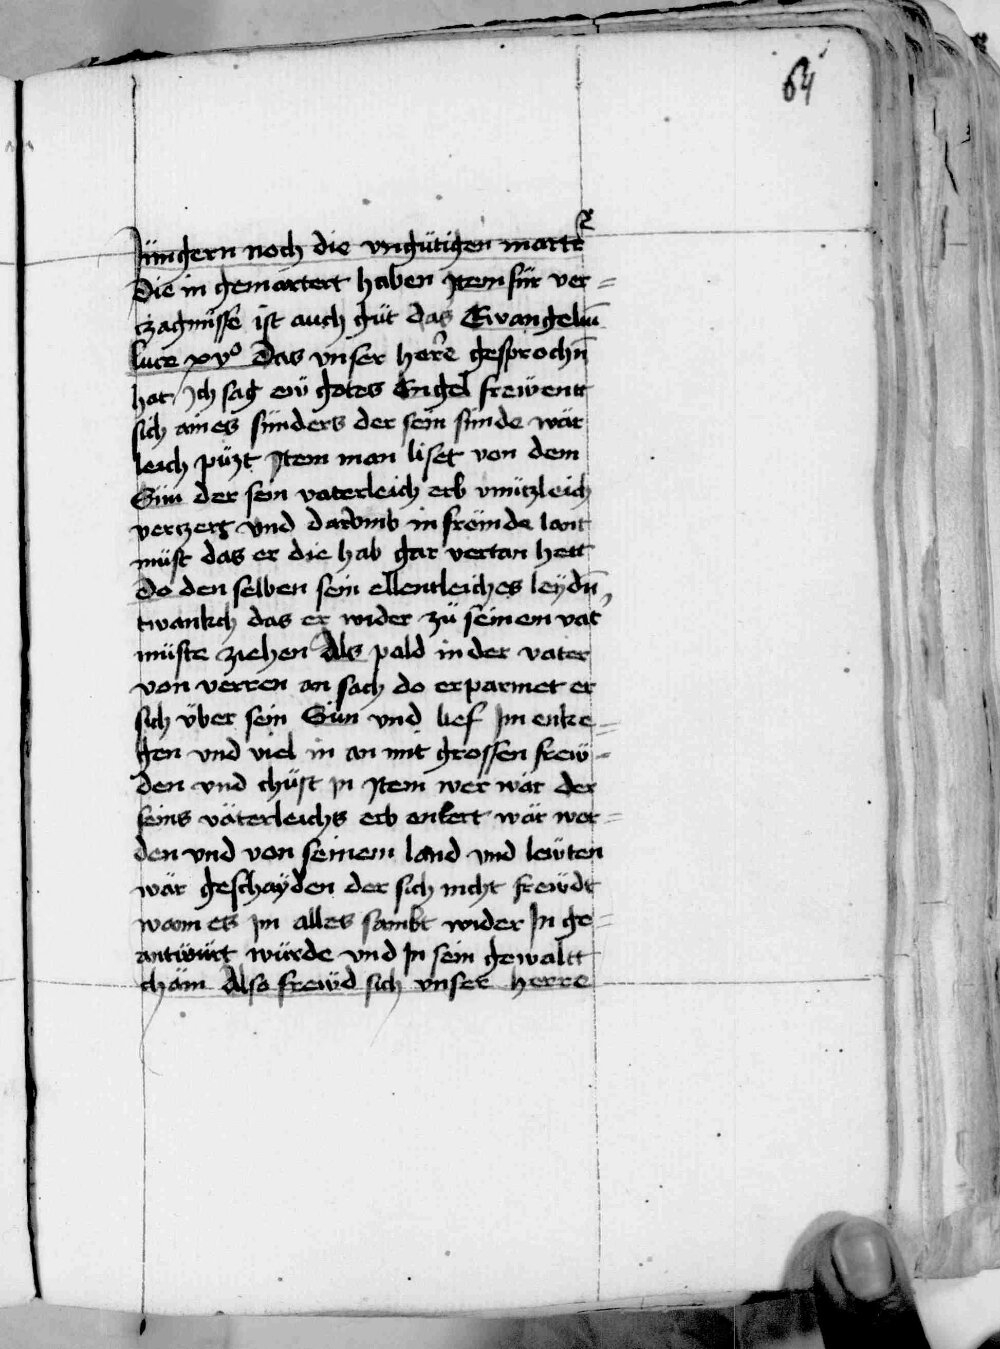 64
Jüngern noch die vngütigen marte͛
die in gemartert haben Item für ver=
czagnüsse ist auch güt das Ewangeliū
luce xvo Das vnser herre gesprochn̄
hat / Ich sag ew gotes Engel frewent
sich aines sünders der sein sünde wär
leich püzt Item man liset von dem
Sün der sein vaterleich erb vnnützleich
verczert vnd darvmb in frömde lant
müst das er die hab gar vertan hett
Do den selben sein ellentleiches leydn̄
twankch das er wider zü seinem vat͛
müste ziehen Als pald in der vater
von verren an sach do erparmet er
sich über sein Sün vnd lief Im enke=
gen vnd viel in an mit grossen frew=
den vnd chüst in Item wer wär der
seins väterleichs erb entert wär wor=
den vnd von seinem land vnd lewten
wär geschayden der sich nicht frewdt
wann es im alles sambt wider In ge=
antwürt würde vnd In sein gewaltt
chäm Also frewd sich vnser herre